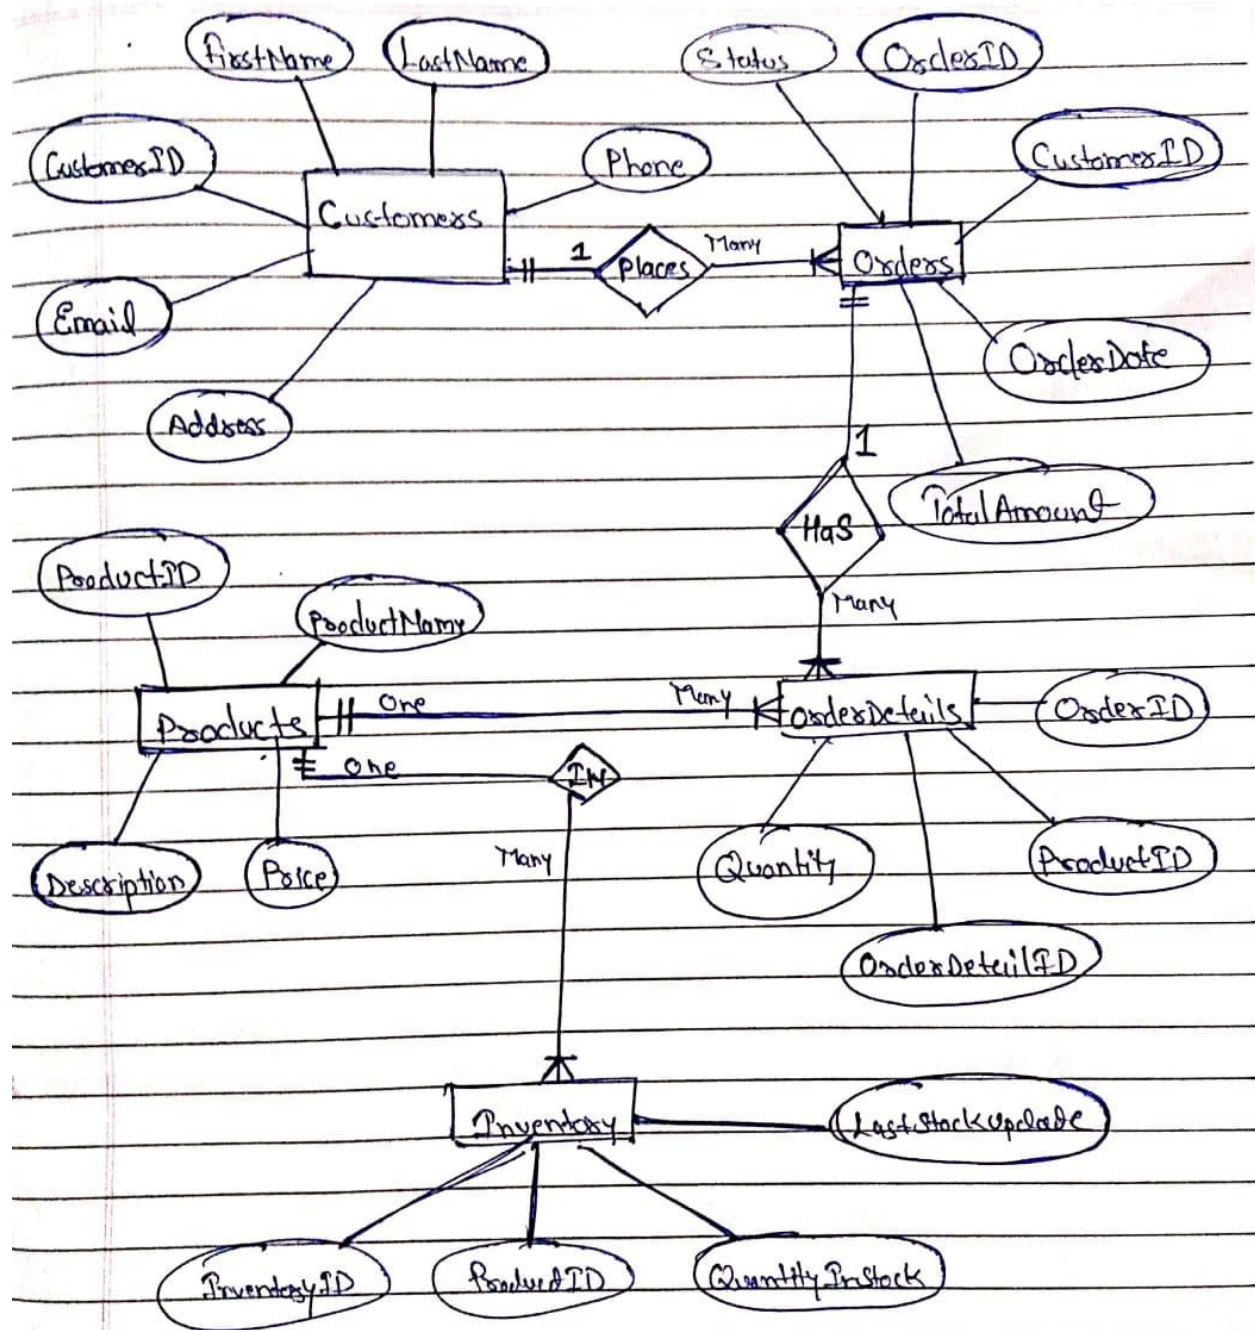 FirstName
LastName
Status
OrderID
CustomerID
Phone
CustomerID
Customers
1
Places
Many
Orders
Email
OrderDate
Address
1
TotalAmount
HaS
ProductID
Many
ProductNamy
One
Many
Products
OrderDetails
OrderID
One
IN
Many
Description
Price
Quantity
ProductID
OrderDetailID
Inventory
LastStockUpdate
InventoryID
ProductID
QuantityInStock